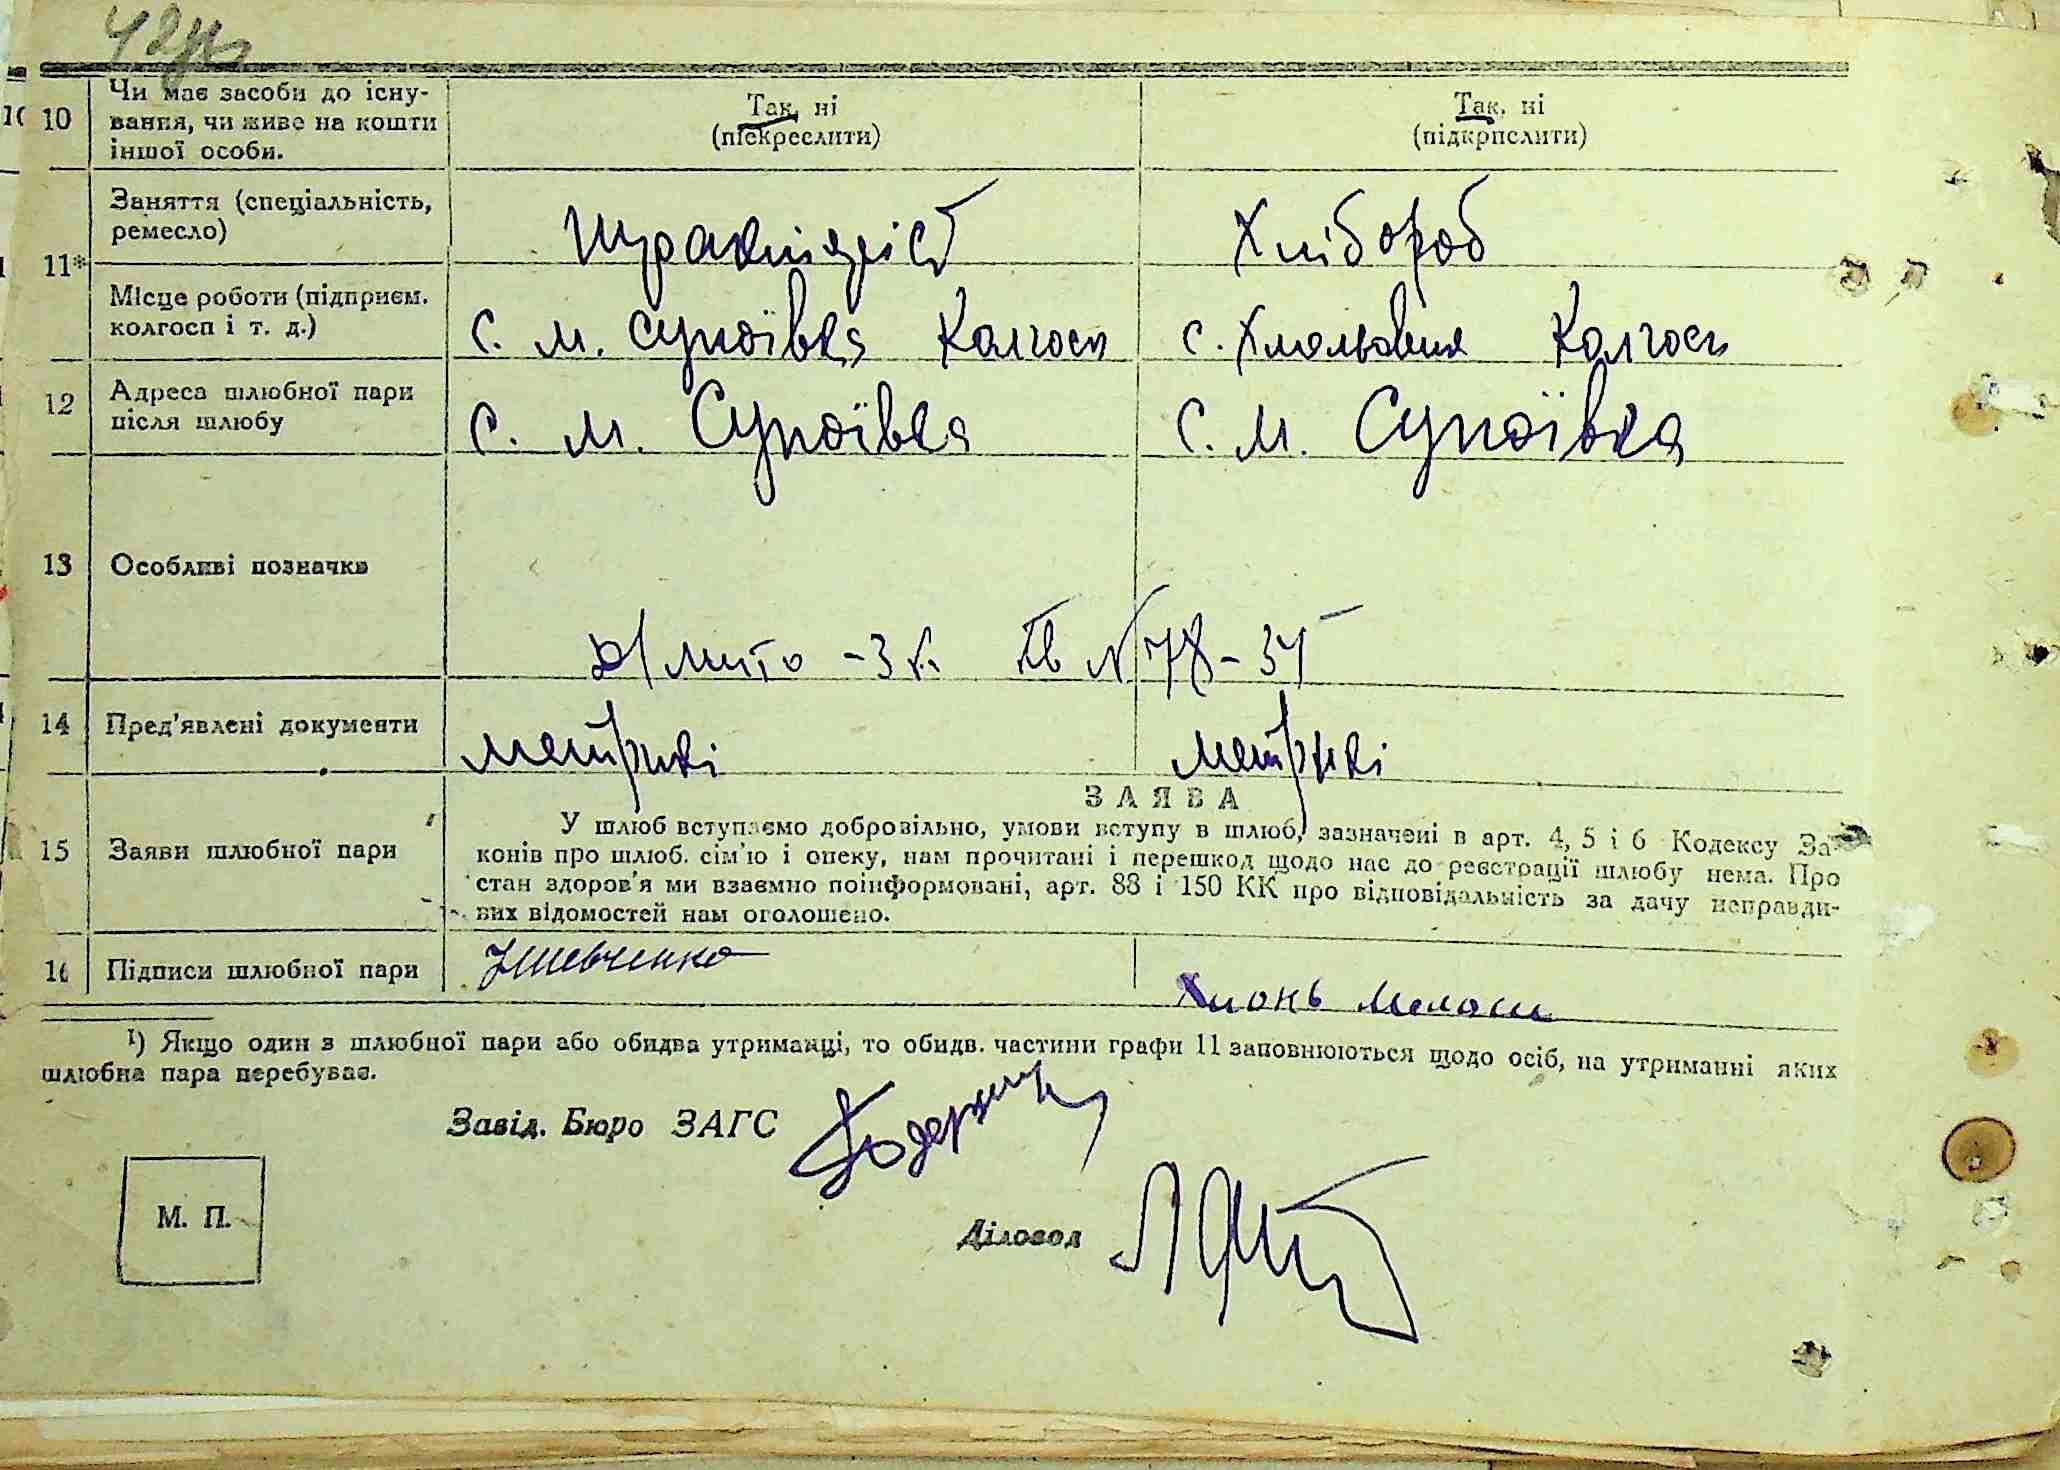 42
10 Чи має засоби до існу-
вання, чи живе на кошти
іншої особи.
Так, ні
(підкреслити)
Так, ні
(підкрислити)
11* Заняття (спеціальність,
ремесло)
Хлібороб
Місце роботи (підприєм.
колгосп і т. д.)
с. М. Супоївка Колгосп
с. Хмельовик Колгосп
12 Адреса шлюбної пари
після шлюбу
с. М. Супоївка
с. М. Супоївка
13 Особливі позначки
д/мито - 3 к. Кв N 78-34
14 Пред'явлені документи
метрикі
метрикі
15 Заяви шлюбної пари
ЗАЯВА
У шлюб вступаємо добровільно, умови вступу в шлюб, зазначені в арт. 4, 5 і 6 Кодексу За-
конів про шлюб. сім'ю і опеку, нам прочитані і перешкод щодо нас до реєстрації шлюбу нема. Про
стан здоров'я ми взаємно поінформовані, арт. 88 і 150 КК про відповідальність за дачу неправди-
вих відомостей нам оголошено.
16 Підписи шлюбної пари
Шевченко
Хлонь
¹) Якщо один з шлюбної пари або обидва утриманці, то обидв. частини графи 11 заповнюються щодо осіб, на утриманні яких
шлюбна пара перебуває.
Завід. Бюро ЗАГС
М. П.
Діловод